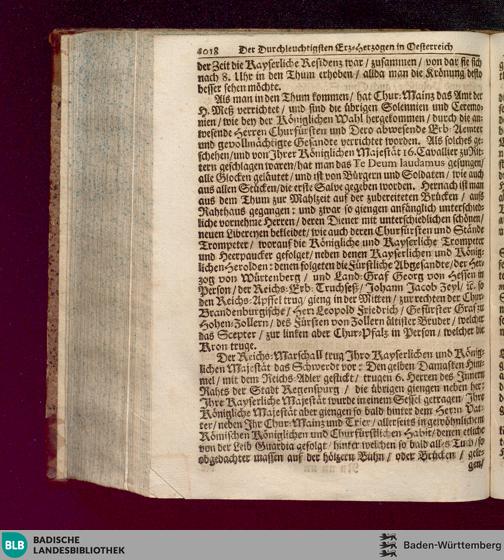 4018 Der Durchleuchtigsten Ertz-Hertzogen in Oesterreich
der Zeit die Kayserliche Residenz war / zusammen / von dar sie sich
nach 8. Uhr in den Thum erhoben / allda man die Krönung desto
besser sehen möchte.
Als man in den Thum kommen / hat Chur-Mainz das Amt der
H. Meß verrichtet / und sind die übrigen Solennien und Ceremo-
nien / wie bey der Königlichen Wahl hergekommen / durch die an-
wesende Herren Churfürsten und Dero abwesende Erb-Aemter
und gevollmächtigte Gesandte verrichtet worden. Als solches ge-
schehen / und von Ihrer Königlichen Majestät 16. Cavallier zu Rit-
tern geschlagen waren / hat man das Te Deum laudamus gesungen /
alle Glocken geläutet / und ist von Bürgern und Soldaten / wie auch
aus allen Stücken / die erste Salve gegeben worden. Hernach ist man
aus dem Thum zur Mahlzeit auf der zubereiteten Brücken / aufs
Rathaus gegangen: und zwar so giengen anfänglich unterschied-
liche vornehme Herren / deren Diener mit unterschiedlichen schönen /
neuen Libereyen bekleidet / wie auch deren Churfürsten und Stände
Trompeter / worauf die Königliche und Kayserliche Trompeter
und Heerpaucker gefolget / neben denen Kayserlichen und König-
lichen Herolden: denen folgeten die Fürstliche Abgesandte / der Her-
zog von Würtenberg / und Land-Graf Georg von Hessen in
Person / der Reichs-Erb-Truchseß / Johann Jacob Zeyl / ic. so
den Reichs-Apffel trug / gieng in der Mitten / zur rechten der Chur-
Brandenburgische / Herr Leopold Friedrich / Gefürster Graf zu
Hohen-Zollern / des Fürsten von Zollern ältister Bruder / welcher
das Scepter / zur linken aber Chur-Pfalz in Person / welcher die
Kron truge.
Der Reichs-Marschall trug Ihro Kayserlichen und König-
lichen Majestät das Schwerdt vor: Den gelben Damasten Him-
mel / mit dem Reichs-Adler gestickt / trugen 6. Herren des Innern
Rahts der Stadt Regenspurg / die übrigen giengen neben her:
Ihre Kayserliche Majestät wurde in einem Sessel getragen / Ihre
Königliche Majestät aber giengen so bald hinter dem Herrn Vat-
ter / neben Ihr Chur-Mainz und Trier / allerseits in gewöhnlichen
Römischen Königlichen und Churfürstlichen Habit / denen etliche
von der Leib-Guardia gefolgt / hinter welchen so bald alles Tuch / so
obgedachter massen auf der hölzern Bühn / oder Brücken / gele-
gen /
BLB BADISCHE
LANDESBIBLIOTHEK
Baden-Württemberg